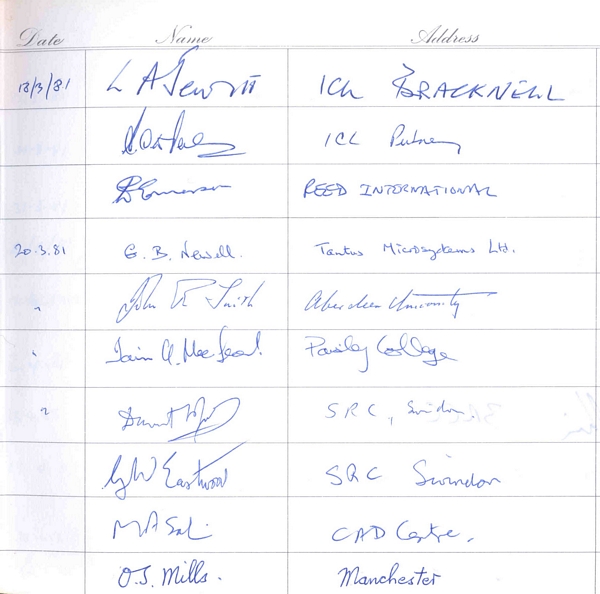 Date Name Address
18/3/81 L A Jewitt ICL BRACKNELL
ICL Putney
REED INTERNATIONAL
20.3.81 G. B. Newell. Tantus Microsystems Ltd.
" John R Smith Aberdeen University
" Iain Paisley College
" SRC, Swindon.
G W Eastwood SRC Swindon
M A CAD Centre.
O.J. Mills. Manchester